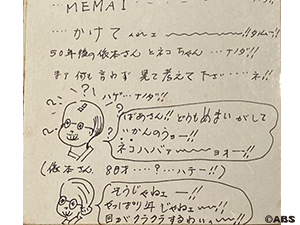 MEMAI
……かけて
50年後の依本さんとネコちゃん…ナノダ!!
まァ何も言わず 見て考えて下さい……ネ!!
ハゲ…ナノダ!!
ばあさん!! とりもめまいがして
いかんのうョー!!
ネコハバァ〜ョオー!!
(依本さん 80才…?…ハテー!!)
そうじゃねェー!!
やっぱり年じゃねェー!!
目がクラクラするわいー!!
©ABS